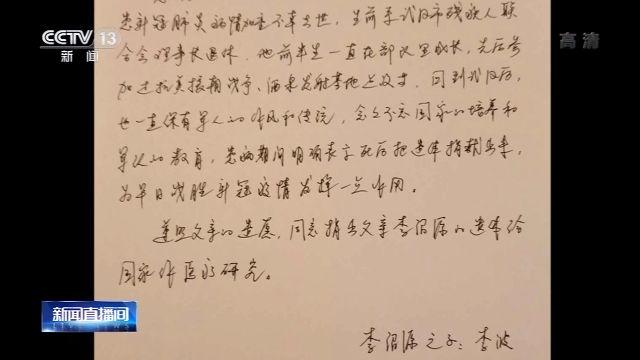 CCTV 13
新闻
高清
患新冠肺炎病情加重不幸去世，生前系武汉市残疾人联
合会理事长退休。他前半生一直在部队里成长，先后参
加过抗美援朝战争、酒泉发射基地建设。回到武汉后，
也一直保有军人的作风和传统，念念不忘国家的培养和
军队的教育，患病期间明确表示死后把遗体捐献出来，
为早日战胜新冠疫情发挥一点作用。
遵照父亲的遗愿，同意捐出父亲李绍源的遗体给
国家作医疗研究。
李绍源之子：李波
新闻直播间